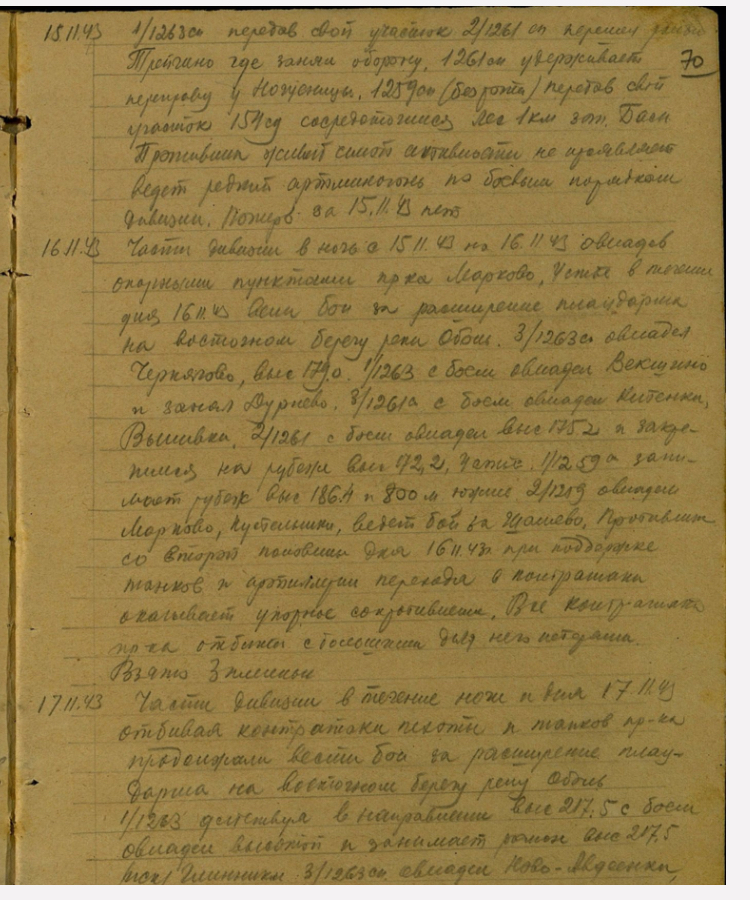 15.11.43 1/1263 сп передав свой участок 2/1261 сп перешел район
Трепчино где занял оборону. 1261 сп удерживает
70
переправу у Ноженицы. 1259 сп (без роты) передав свой
участок 154 сд сосредоточился лес 1 км зап.
Противник живой силой активности не проявляет
ведет редкий артминогонь по боевым порядкам
дивизии. Потерь за 15.11.43 нет
16.11.43 Части дивизии в ночь с 15.11.43 на 16.11.43 овладев
опорными пунктами пр-ка Марково, в течении
дня 16.11.43 вели бои за расширение плацдарма
на восточном берегу реки Оболь. 3/1263 сп овладел
Черняково, выс 179.0. 1/1263 с боем овладел Векшино
и занял Дурнево. 3/1261 с боем овладел
2/1261 с боем овладел выс 175.2 и закре-
пился на рубеже выс 172,2, 1/1259 зани-
мает рубеж выс 186.4 и 800 м южнее 2/1259 овладел
Марково, Пустельники, ведет бой за Противник
со второй половины дня 16.11.43 при поддержке
танков и артиллерии переходя в контратаки
оказывает упорное сопротивление. Все контратаки
пр-ка отбиты с большими для него потерями.
Взято 3 пленных
17.11.43 Части дивизии в течение ночи и дня 17.11.43
отбивая контратаки пехоты и танков пр-ка
продолжали вести бой за расширение плац-
дарма на восточном берегу реки Оболь
1/1263 действуя в направлении выс 217.5 с боем
овладел высотой и занимает район выс 217.5
(иск) Глинники 3/1263 сп овладел Ново-Авдеенки,